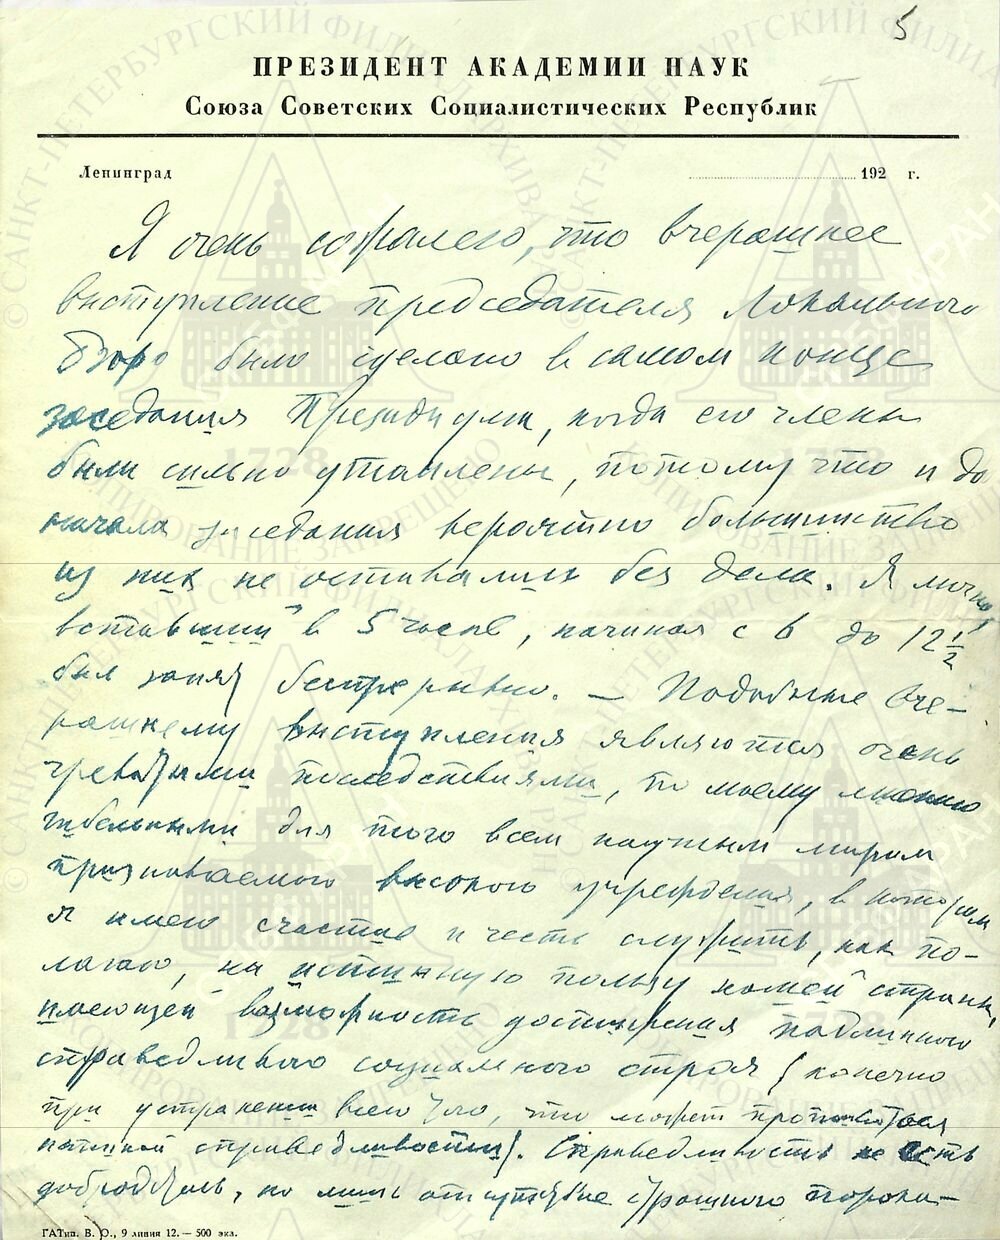 5
ПРЕЗИДЕНТ АКАДЕМИИ НАУК
Союза Советских Социалистических Республик
Ленинград 192 г.
Я очень сожалею, что вчерашнее
выступление председателя Локального
бюро было сделано в самом конце
заседания Президиума, когда его члены
были сильно утомлены, потому что и до
начала заседания вероятно большинство
из них не оставались без дела. Я лично,
вставший в 5 часов, начиная с 6 до 12 1/2
был занят беспрерывно. — Подобные вче-
рашнему выступления являются очень
чреватыми последствиями, по моему мнению
гибельными для того всем научным миром
признаваемого высокого учреждения, в котором
я имею счастие и честь служить, как по-
лагаю, на истинную пользу нашей страны,
имеющей возможность достижения подлинного
справедливого социального строя (конечно
при устранении всего зла, что может
справедливости). Справедливость не есть
добродетель, но лишь отсутствие страшного порока—
ГАТип. В. О., 9 линия 12. — 500 экз.